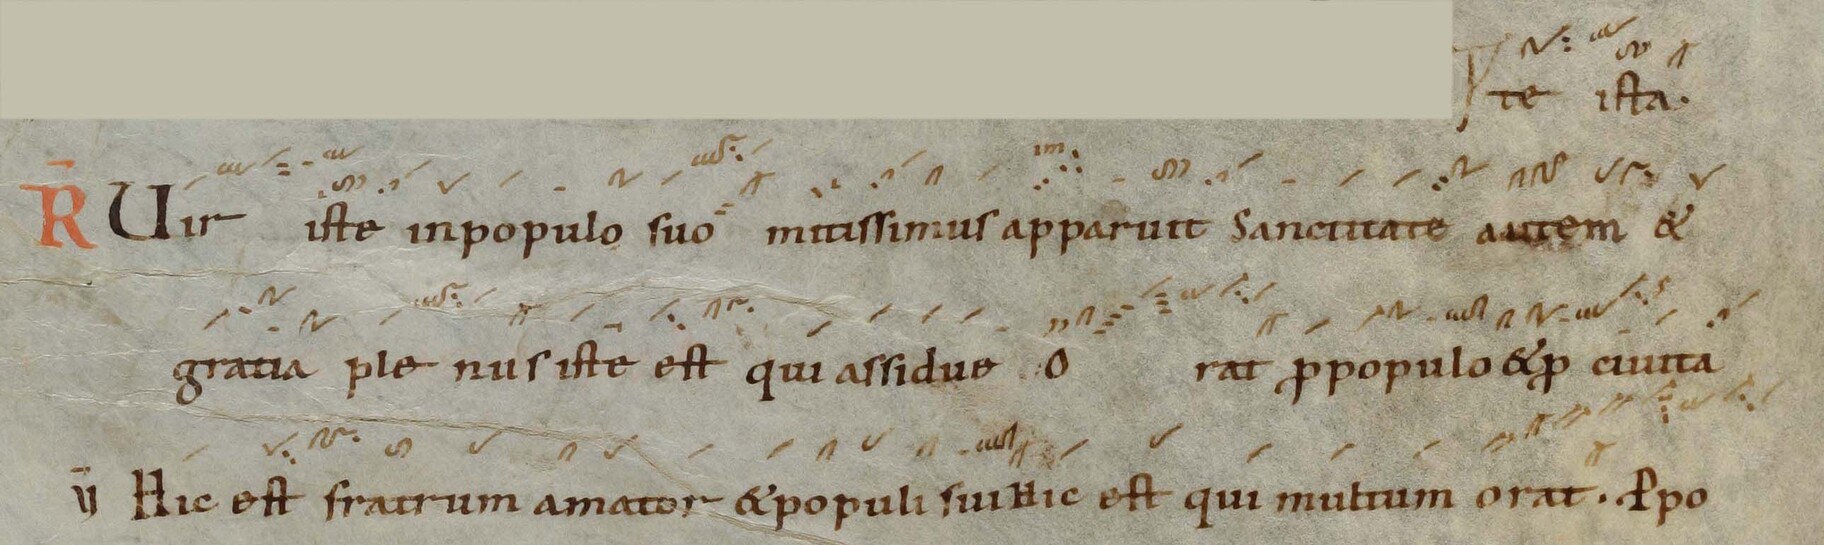 te ista.
R Uir iste inpopulo suo mitissimus apparuit Sanctitate autem &
gratia plenus iste est qui assidue orat ꝓpopulo &ꝓ ciuita
V Hic est fratrum amator &populi sui Hic est qui multum orat. Ꝓpo